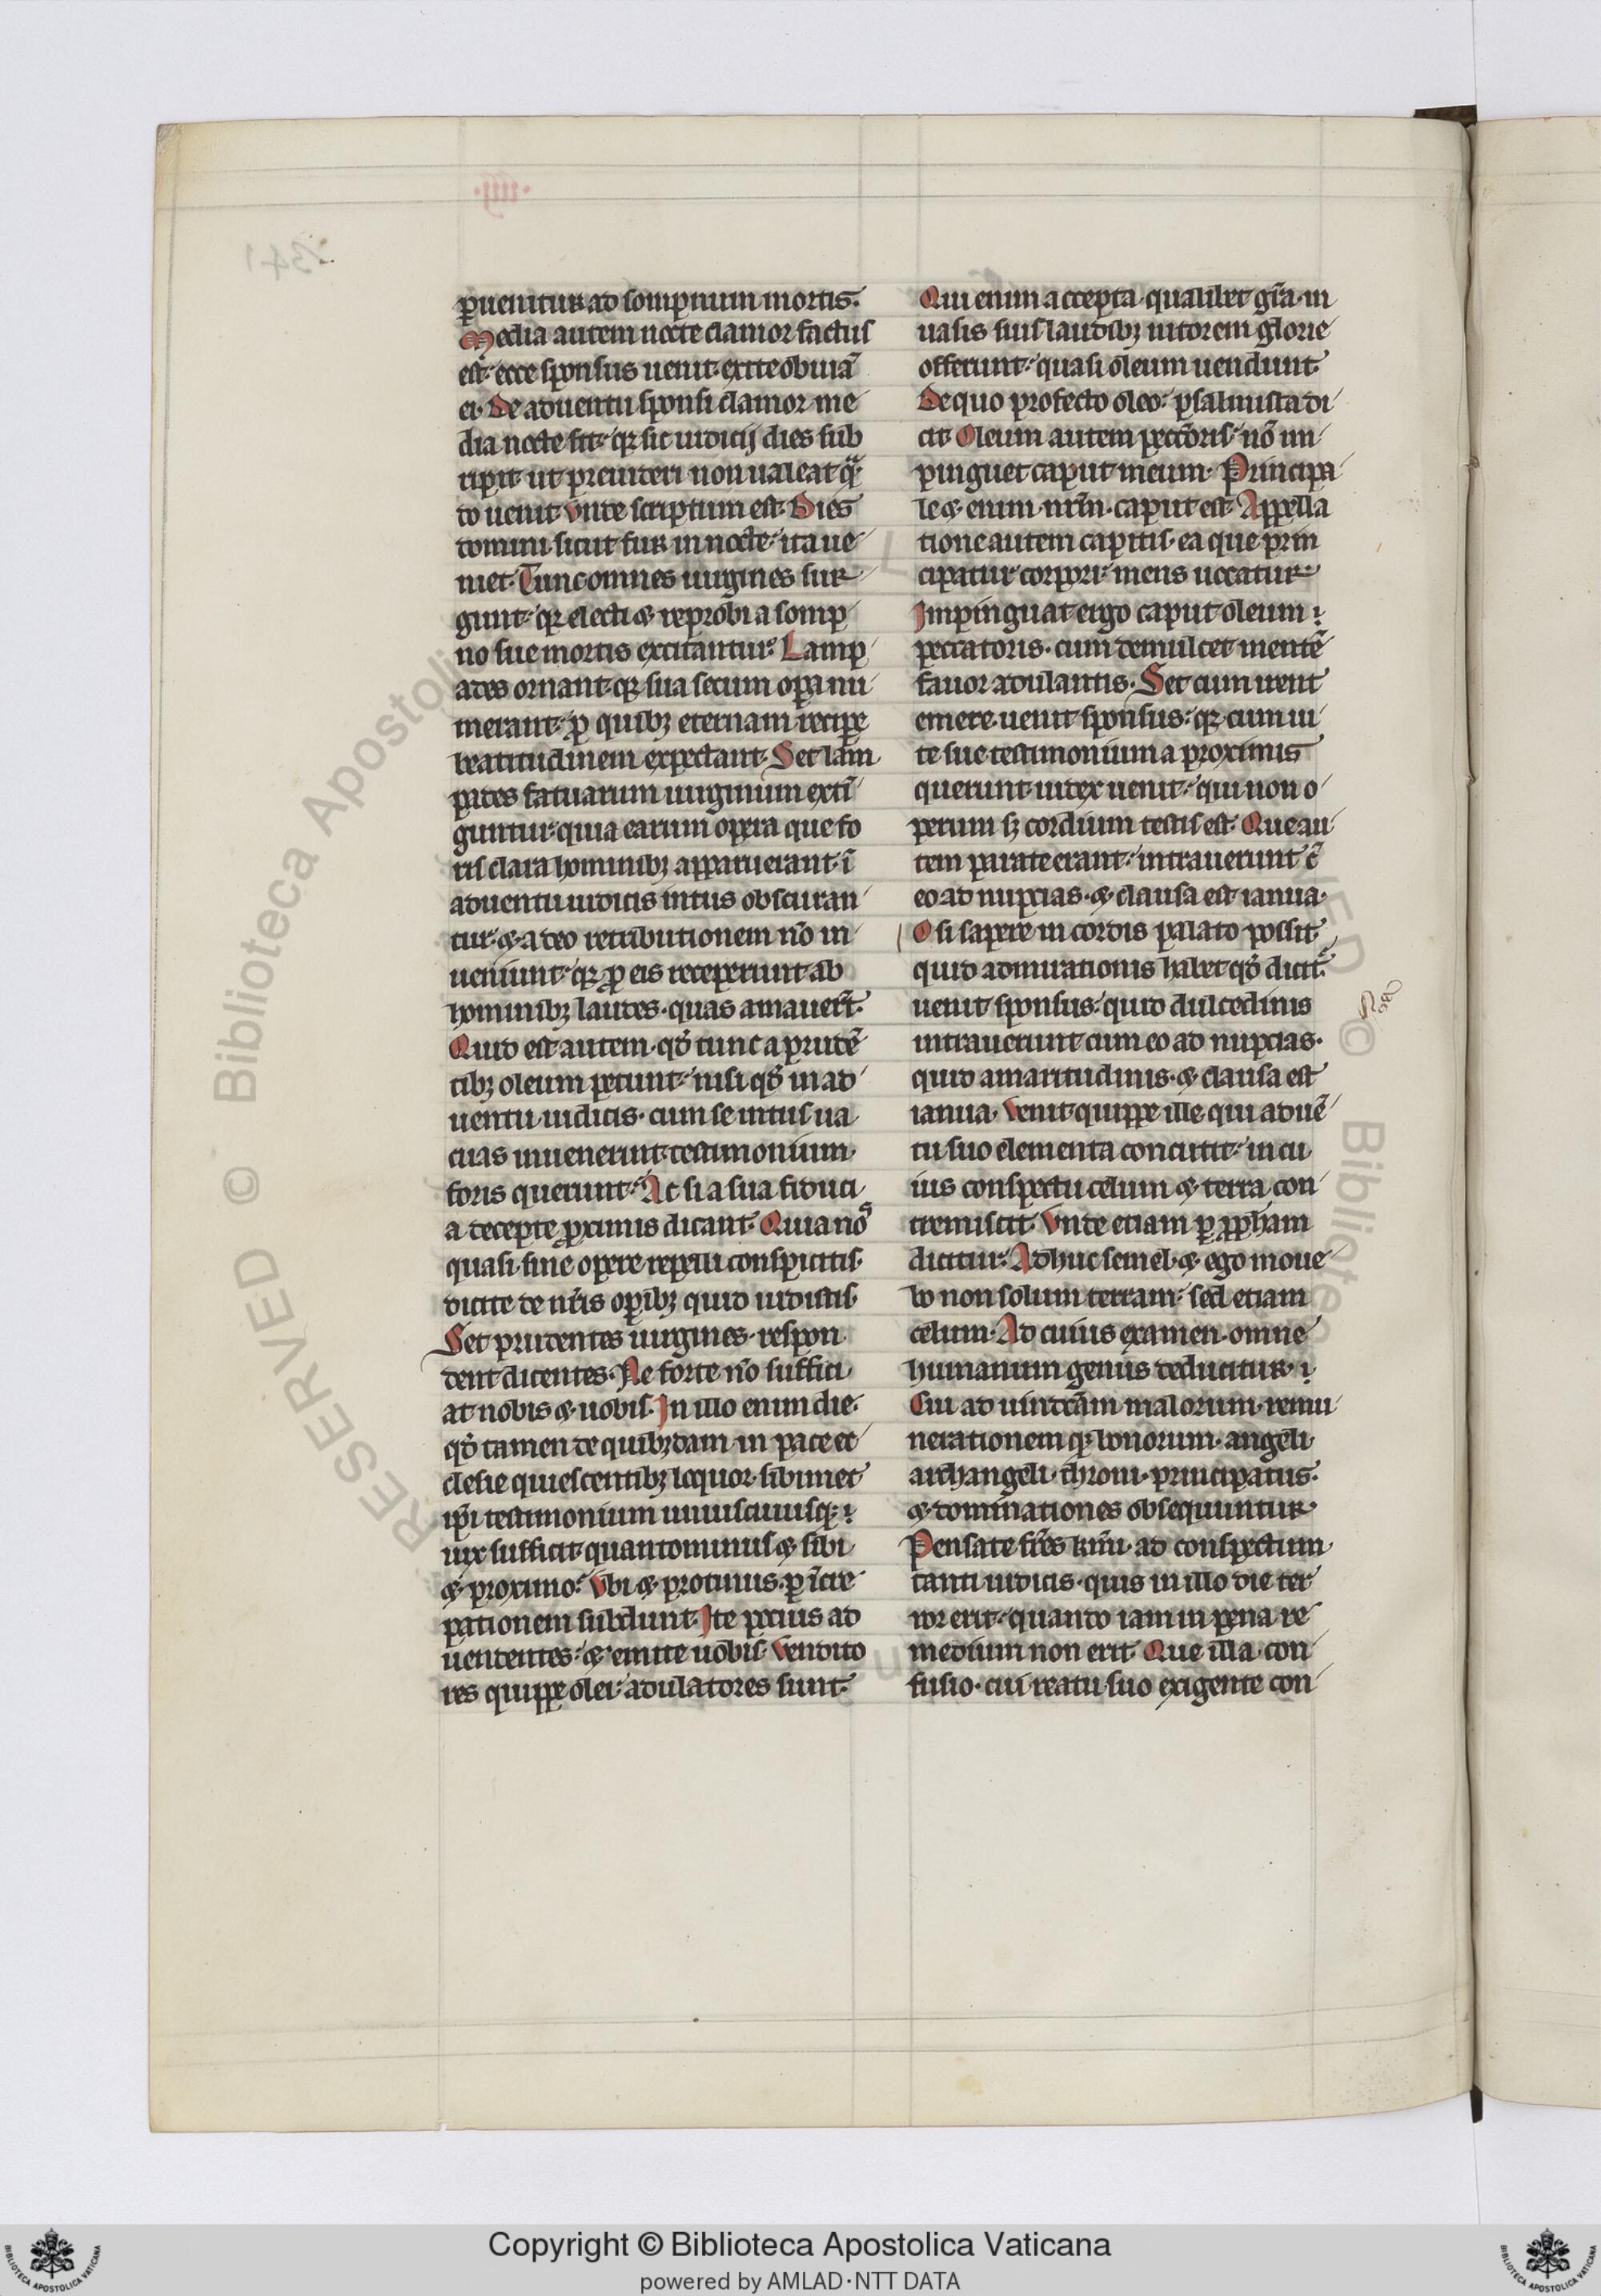 ꝑuenitur ad sompnum mortis.
Media autem nocte clamor factus
est. ecce sponsus uenit. exite obuiā
ei. De aduentu sponsi clamor me
dia nocte fit. qꝛ sic iudicij dies sub
ripit ut preuideri non ualeat qͣ
do uenit. vnde scriptum est. Dies
domini. sicut fur in nocte. ita ue
niet. Tunc omnes uirgines sur
gunt. qꝛ electi & reprobi a somp
no sue mortis excitantur. Lamp
ades ornant. qꝛ sua secum oꝑa nu
merant. ꝓ quibꝫ eternam reciꝑe
beatitudinem expectant. Set lam
pades fatuarum uirginum extī
guntur. quia earum opera que fo
ris clara hominibꝫ apparuerant. ī
aduentu iudicis intus obscuran
tur. & a deo retributionem nō in
ueniunt. qꝛ ꝓ eis receperunt ab
hominibꝫ laudes. quas amauer̄t.
Quid est autem. qđ tunc a prudē
tibꝫ oleum petunt. nisi qđ in ad
uentu iudicis. cum se intus ua
cuas inuenerint. testimonium.
foris querunt. Ac si a sua fiduci
a decepte ꝓximis dicant. Quia nos̄
quasi sine opere repelli conspicitis.
dicite de nr̄is oꝑibꝫ quid uidistis.
Set prudentes uirgines. respon
dent dicentes. Ne forte nō suffici
at nobis & uobis. In illo enim die.
qđ tamen de quibꝫdam in pace ec
clesie quiescentibꝫ loquor. sibimet
ip̄i testimonium uniuscuiusqꝫ
uix sufficit. quantominus & sibi
& proximo. Vbi & protinus. ꝑ īcre
pationem subdunt. Ite pocius ad
uendentes. & emite uobis. Vendito
res quippe olei. adulatores sunt.
Qui enim accepta. qualibet gr̄a. in
uasis suis laudibꝫ nitorem glorie
offerunt. quasi oleum uendunt.
De quo profecto oleo. psalmista di
cit. Oleum autem pecc̄oris. nō im
pinguet caput meum. Principa
le & enim. nr̄m. caput est. Appella
tione autem capitis. ea que prin
cipatur corpori. mens uocatur.
Impinguat ergo caput oleum
peccatoris. cum demulcet mentē
fauor adulantis. Set cum irent
emere. uenit sponsus. qꝛ cum ui
te sue testimonium a proximis
querunt. iudex uenit. qui non o
perum sꝫ cordium testis est. Que au
tem parate erant. intrauerunt c̄
eo ad nupcias. & clausa est ianua.
O si sapere in cordis palato possit
quid admirationis habet qđ dicit.
uenit sponsus. quid dulcedinis
intrauerunt cum eo ad nupcias.
quid amaritudinis. & clausa est
ianua. Venit quippe ille qui aduē
tu suo elementa concutit. in cu
ius conspectu celum & terra con
tremiscit. Vnde etiam ꝑ ꝓpham
dicitur. Adhuc semel. & ego moue
bo non solum terram. sed etiam
celum. Ad cuius examen. omne
humanum genus deducitur.
Cui ad uindc̄am malorum. remu
nerationem qꝫ bonorum. angeli.
archangeli. throni. principatus.
& dominationes obsequuntur.
Pensate fr̄es kr̄mi. ad conspectum
tanti iudicis. quis in illo die ter
ror erit. quando iam in pena re
medium non erit. Que illa. con
fusio. cui reatu suo exigente con
Copyright © Biblioteca Apostolica Vaticana
powered by AMLAD·NTT DATA
RESERVED © Biblioteca Apostoli
VED © Biblioteca